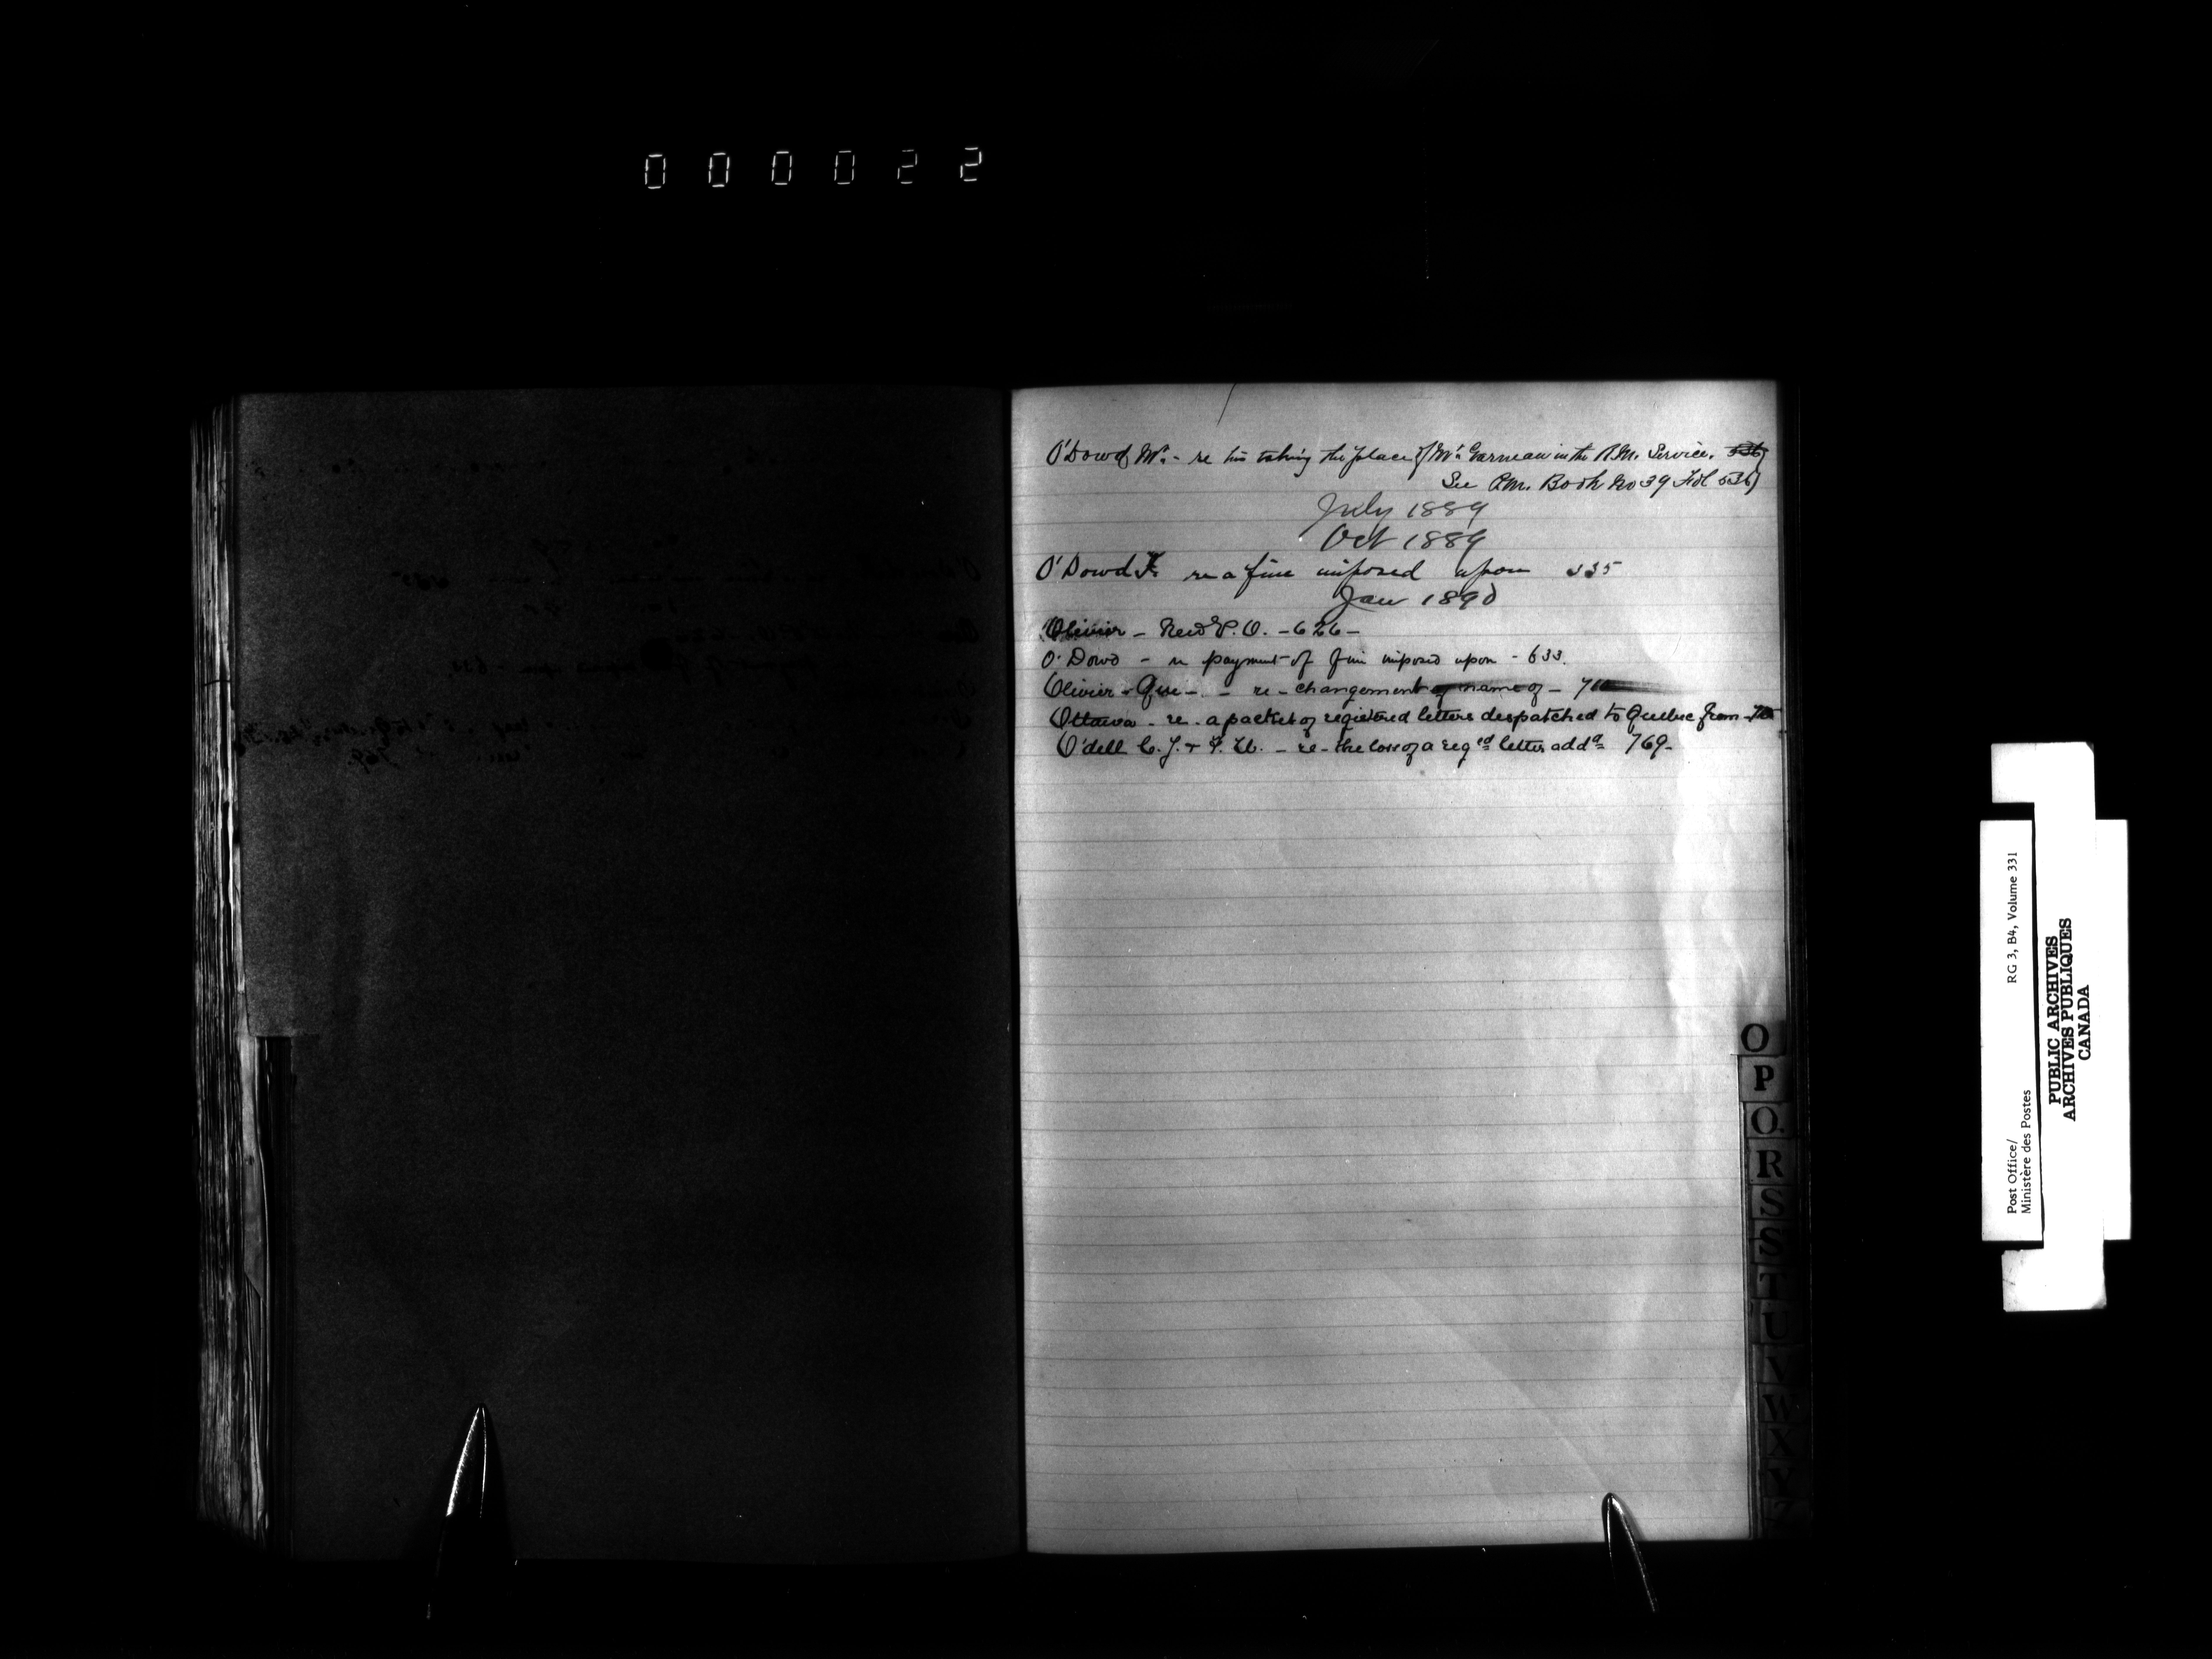 000022
O'Dowd Mr. - re his taking the place of Mr. Garneau in the R.M. Service. 536
See P.M. Book No 39 Fol 536)
July 1889
Oct 1889
O'Dowd F. re a fine imposed upon 535
Jan 1890
Olivier - New P.O. - 626 -
O'Dowd - re payment of fine imposed upon - 633.
Olivier - Que - . - re - changement of name of -
Ottawa - re - a packet of registered letters despatched to Quebec from -
O'dell C. J. + F. W. - re - the loss of a regd letter addd 769 -
O
P
Q
R
S
S
T
U
V
W
X
Y
Z
Post Office/
Ministère des Postes
RG 3, B4, Volume 331
PUBLIC ARCHIVES
ARCHIVES PUBLIQUES
CANADA